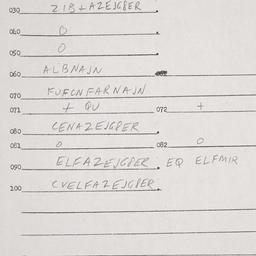 030 ZIB+AZEJGPER.
040 O.
050 O.
060 ALBNAJN
070 FUFCNFARNAJN
071 + QU 072 +
080 CENAZEJGPER.
081 O 082 O
090 ELFAZEJGPER. EQ ELFMIR
100 CVELFAZEJGPER.